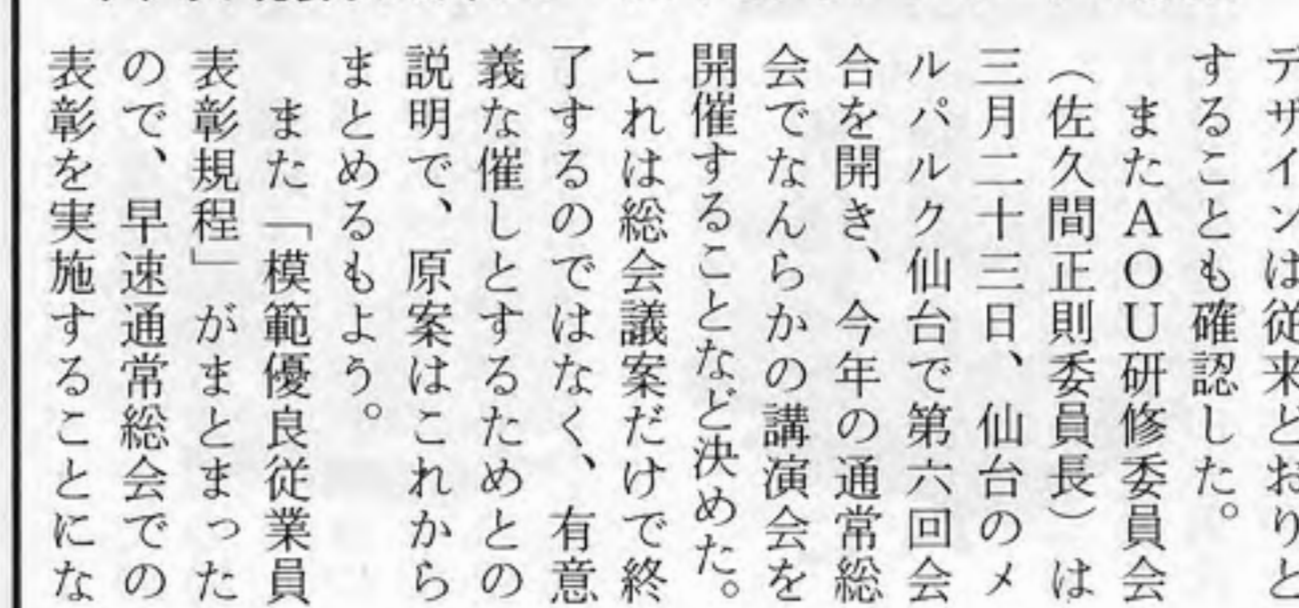 デザインは従来どおりと
することも確認した。
またＡＯＵ研修委員会
（佐久間正則委員長）は
三月二十三日、仙台のメ
ルパルク仙台で第六回会
合を開き、今年の通常総
会でなんらかの講演会を
開催することなど決めた。
これは総会議案だけで終
了するのではなく、有意
義な催しとするためとの
説明で、原案はこれから
まとめるもよう。
また「模範優良従業員
表彰規程」がまとまった
ので、早速通常総会での
表彰を実施することにな